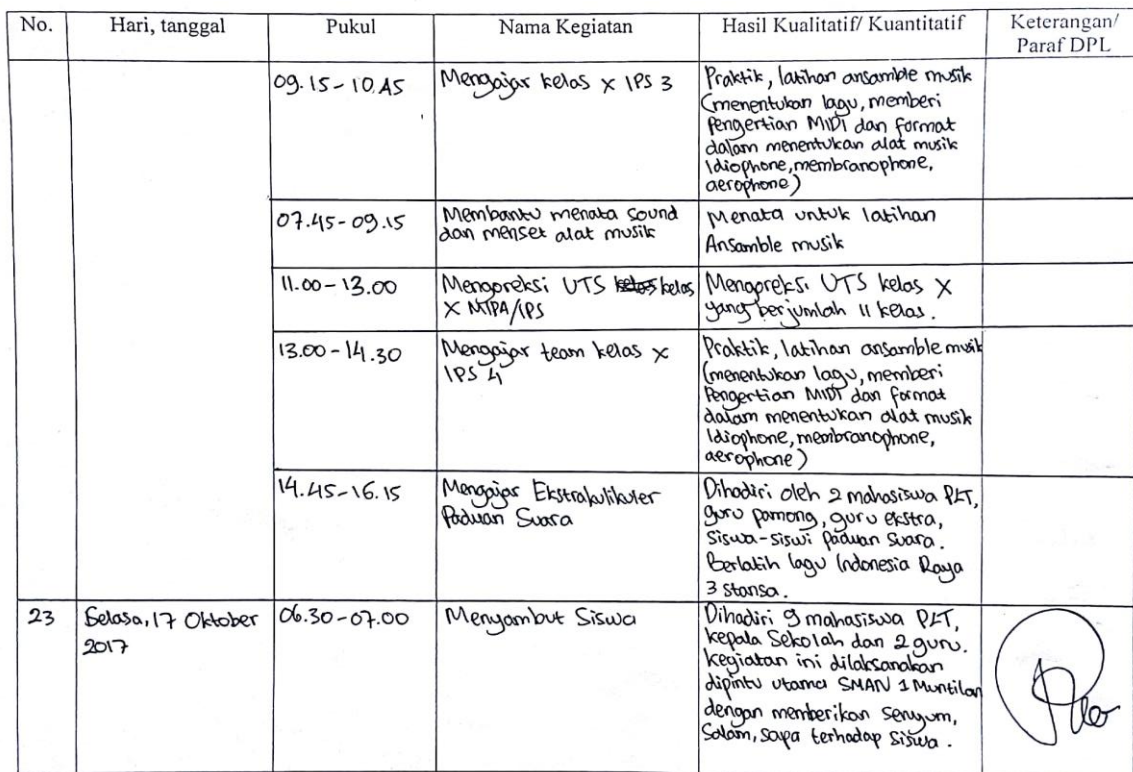 No. Hari, tanggal Pukul Nama Kegiatan Hasil Kualitatif/ Kuantitatif Keterangan/
Paraf DPL
09.15 - 10.45 Mengajar kelas X IPS 3 Praktik, latihan ansamble musik
(menentukan lagu, memberi
Pengertian MIDI dan format
dalam menentukan alat musik
Idiophone, membranophone,
aerophone)
07.45 - 09.15 Membantu menata sound Menata untuk latihan
dan menset alat musik Ansamble musik
11.00 - 13.00 Mengoreksi UTS kelas kelas Mengoreksi UTS kelas X
X MIPA/IPS yang berjumlah 11 kelas.
13.00 - 14.30 Mengajar team kelas X Praktik, latihan ansamble musik
IPS 4 (menentukan lagu, memberi
Pengertian MIDI dan format
dalam menentukan alat musik
Idiophone, membranophone,
aerophone)
14.45 - 16.15 Mengajar Ekstrakulikuler Dihadiri oleh 2 mahasiswa PLT,
Paduan Suara guru pamong, guru ekstra,
siswa-siswi paduan suara.
Berlatih lagu Indonesia Raya
3 stansa.
23 Selasa, 17 Oktober 06.30 - 07.00 Menyambut Siswa Dihadiri 9 mahasiswa PLT,
2017 kepala Sekolah dan 2 guru.
kegiatan ini dilaksanakan
dipintu utama SMAN 1 Muntilan
dengan memberikan senyum,
Salam, sapa terhadap siswa.